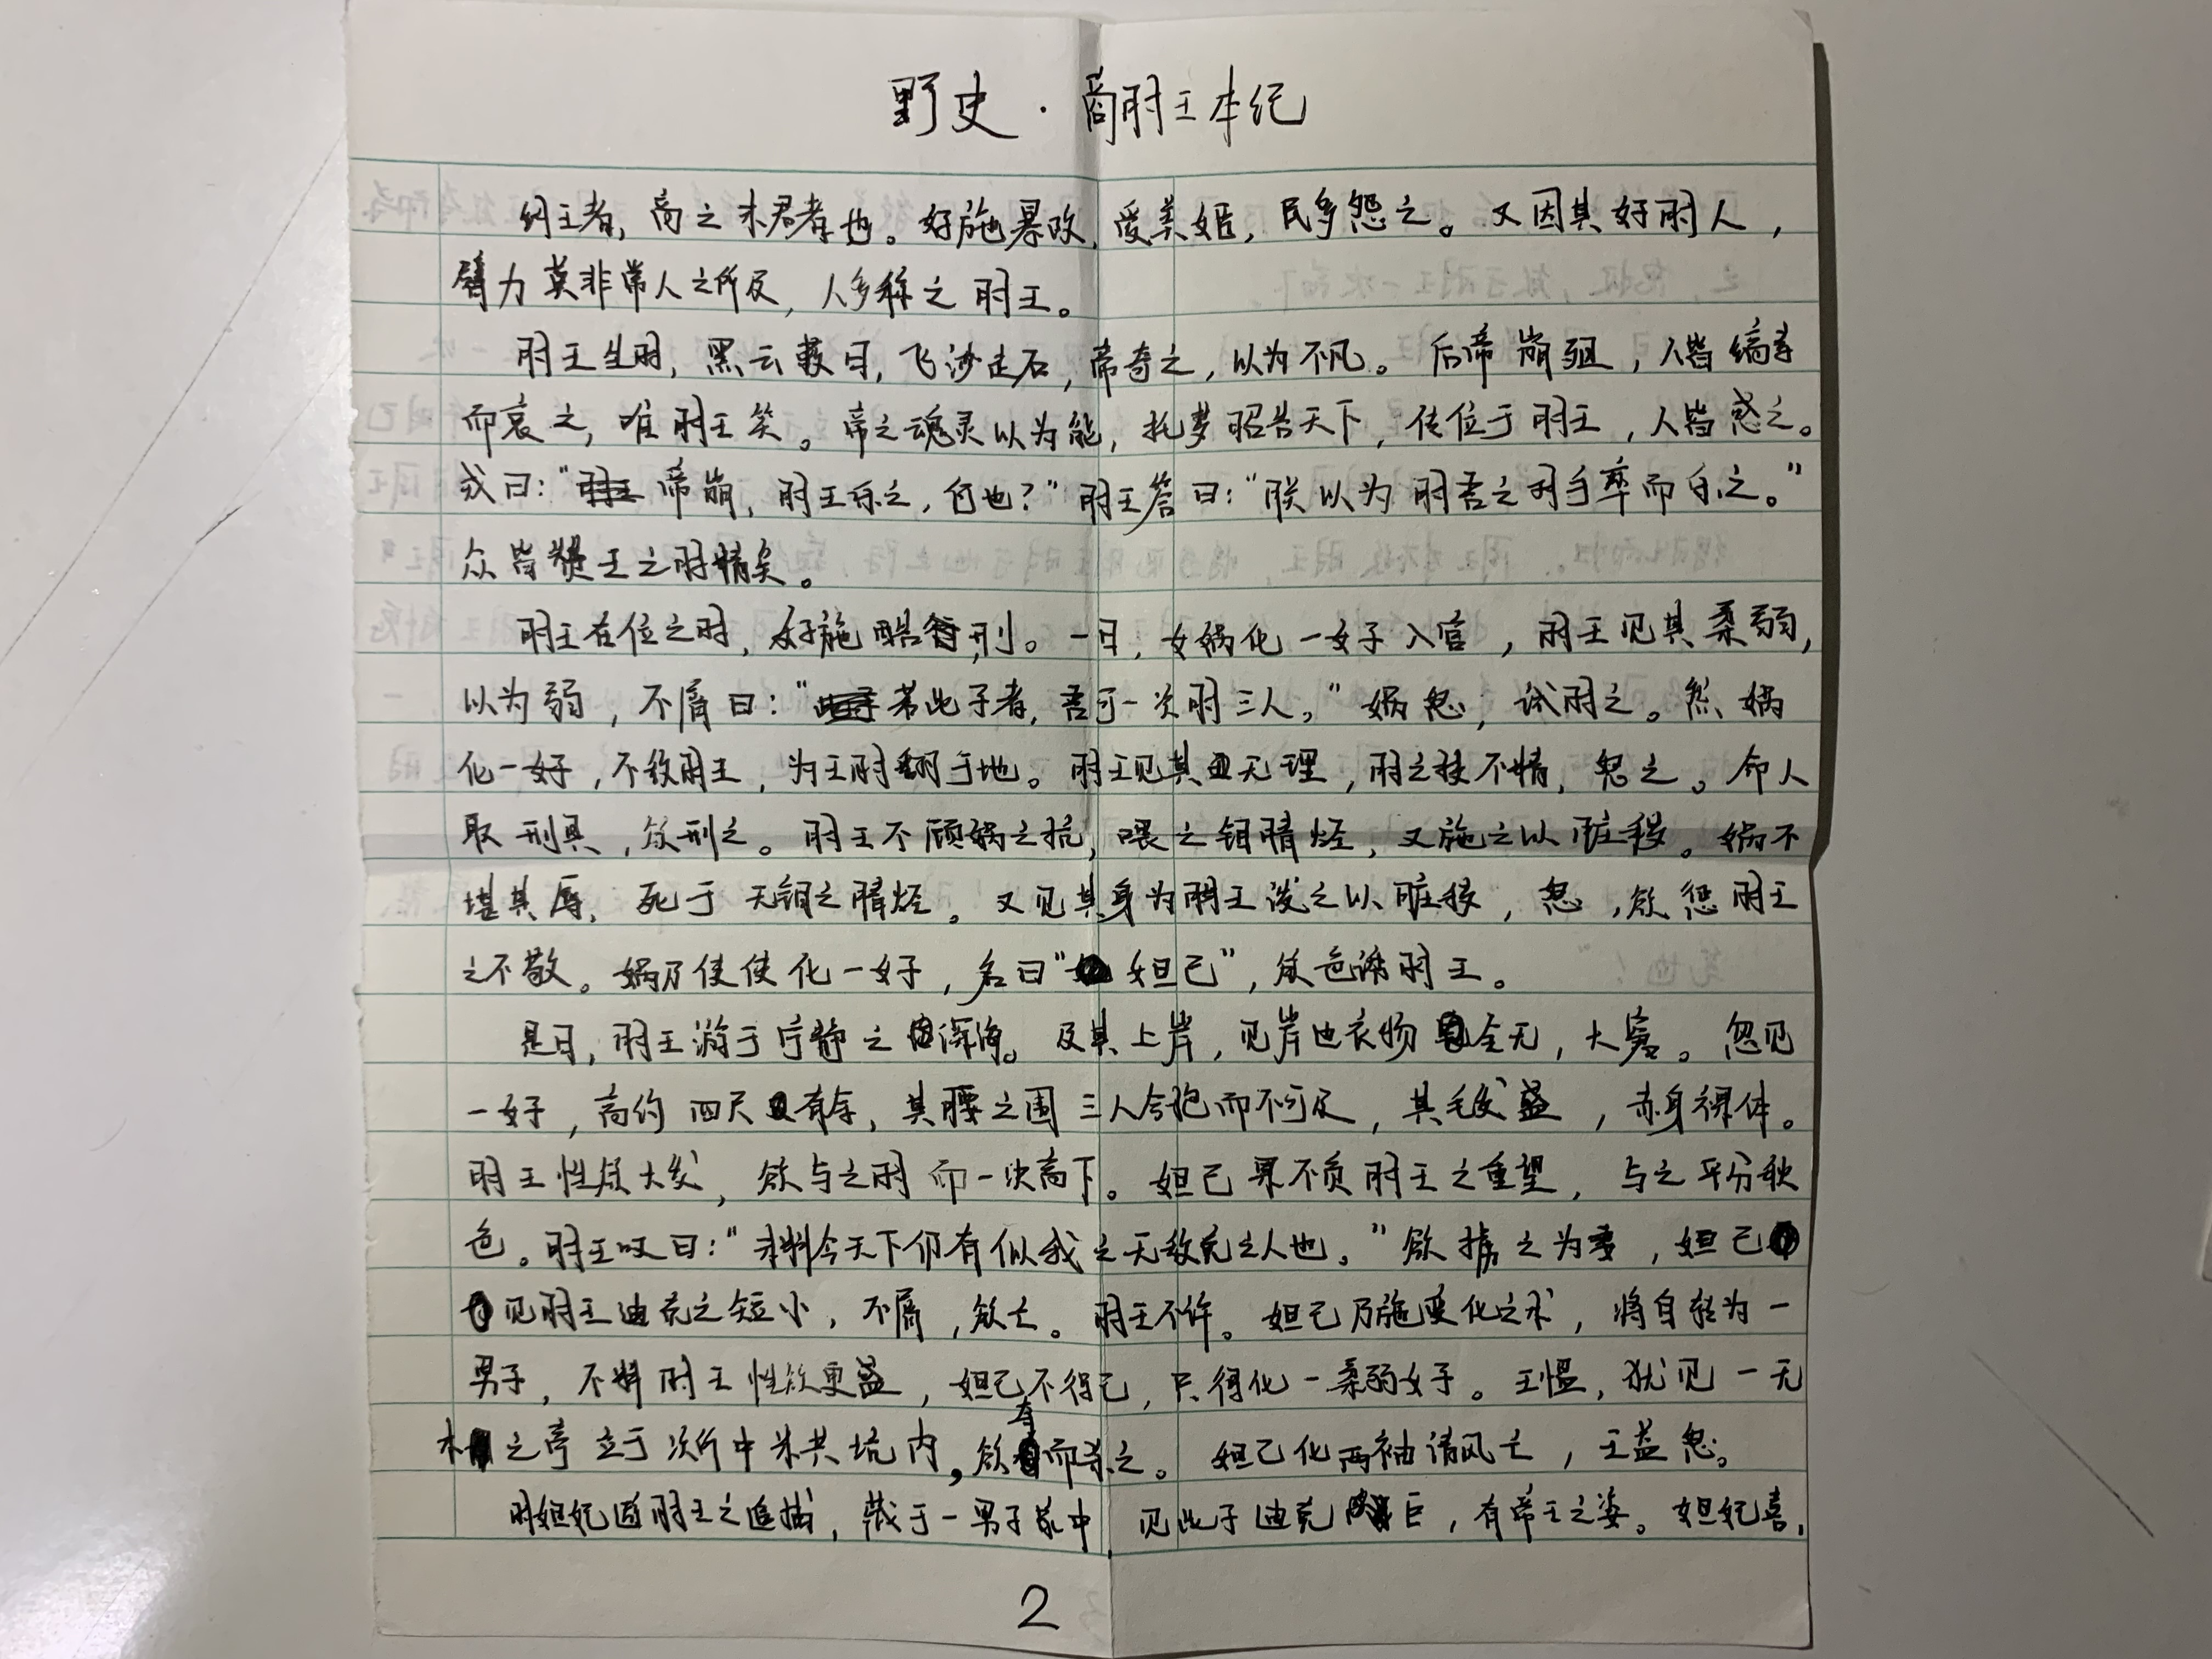 野史·商肘王本纪
纣王者，商之末君者也。好施暴政，爱美姬，民多怨之。又因其好肘人，
臂力莫非常人之所及，人多称之肘王。
肘王生时，黑云蔽日，飞沙走石，帝奇之，以为不凡。后帝崩殂，人皆缟素
而哀之，唯肘王笑。帝之魂灵以为能，托梦昭告天下，传位于肘王，人皆惑之。
或曰：“帝崩，肘王乐之，何也？”肘王答曰：“朕以为肘吾之对手率而乐之。”
众皆赞王之肘精矣。
肘王在位之时，好施酷刑。一日，女娲化一女子入宫，肘王见其柔弱，
以为弱，不屑曰：“若此子者，吾可一次肘三人。”娲怒，试肘之。然娲
化一女子，不敌肘王，为王肘翻于地。肘王见其无理，肘之技不精，怒之。命人
取刑具，欲刑之。肘王不顾娲之抗，喂之钼腈烃，又施之以脏秽。娲不
堪其辱，死于无钼之腈烃。又见其身为肘王泼之以脏秽，怒，欲惩肘王
之不敬。娲乃使使化一女子，名曰“妲己”，欲色诱肘王。
是日，肘王游于宁静之深海。及其上岸，见岸边衣物全无，大窘。忽见
一女子，高约四尺有余，其腰之围三人合抱而不可及，其毛发盛，赤身裸体。
肘王性欲大发，欲与之肘而一决高下。妲己果不负肘王之重望，与之平分秋
色。肘王叹曰：“未料今天下仍有似我之无敌克之人也。”欲掳之为妻，妲己
见肘王迪克之短小，不屑，欲亡。肘王不许。妲己乃施变化之术，将自转为一
男子，不料肘王性欲更盛，妲己不得已，只得化一柔弱女子。王愠，犹见一无
木之亭立于次所中米共坑内，欲夺而杀之。妲己化两袖清风亡，王益怒。
时妲妃避肘王之追捕，藏于一男子家中，见此子迪克巨，有帝王之姿。妲妃喜，
2